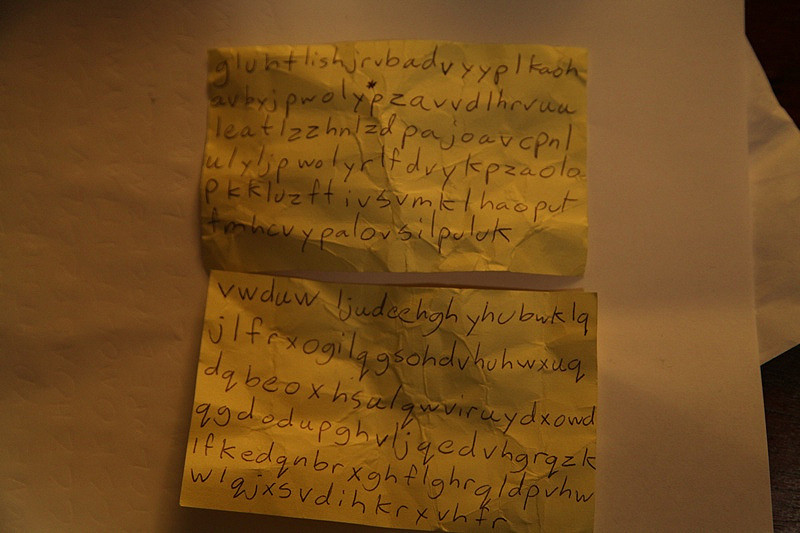 gluhtlishjrvbadvyyplkaoh
avbyjpwolypzavvdlhrvuu
leatlzzhnlzdpajoavcpnl
ulyljpwolyrlfdvykpzaola
pkkluzftivsvmklhaoput
fmhcvypalovsilpuluk
vwduw ljudeehghyhubwklq
jlfrxogilqgsohdvhuhwxuq
dqbeoxhsulqwviruydxowd
qgdodupghvljqedvhgrqzk
lfkedqnbrxghflghrqldpvhw
wlqjxsvdihkrxvhfr